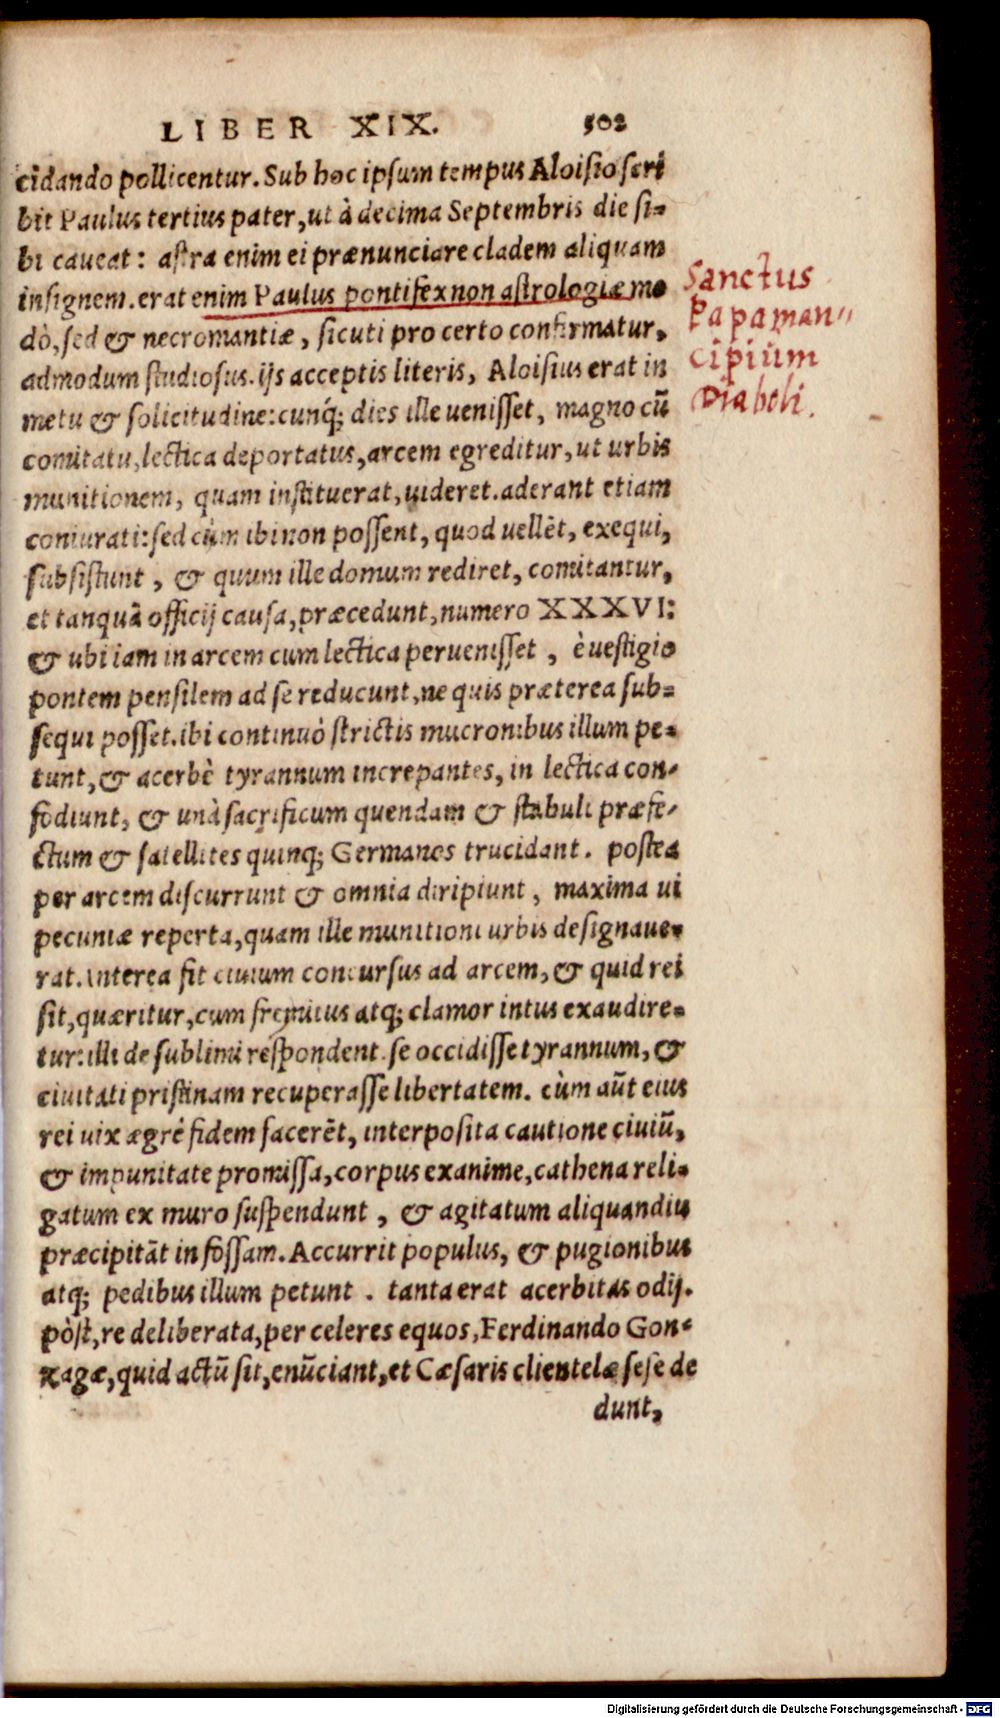 LIBER XIX. 502
cidando pollicentur. Sub hoc ipsum tempus Aloisio scri
bit Paulus tertius pater, ut à decima Septembris die si-
bi caveat: astra enim ei prænunciare cladem aliquam
insignem. erat enim Paulus pontifex non astrologiæ mo
dò, sed & necromantiæ, sicuti pro certo confirmatur,
admodum studiosus. ijs acceptis literis, Aloisius erat in
metu & solicitudine: cunq́; dies ille uenisset, magno cũ
comitatu, lectica deportatus, arcem egreditur, ut urbis
munitionem, quam instituerat, uideret. aderant etiam
coniurati: sed cùm ibi non possent, quod uellẽt, exequi,
subsistunt, & quum ille domum rediret, comitantur,
et tanquã officij causa, præcedunt, numero XXXVI:
& ubi iam in arcem cum lectica peruenisset, è uestigio
pontem pensilem ad se reducunt, ne quis præterea sub-
sequi posset. ibi continuò strictis mucronibus illum pe-
tunt, & acerbè tyrannum increpantes, in lectica con-
fodiunt, & unà sacrificum quendam & stabuli præfe-
ctum & satellites quinq; Germanos trucidant. postea
per arcem discurrunt & omnia diripiunt, maxima ui
pecuniæ reperta, quam ille munitioni urbis designaue-
rat. interea fit ciuium concursus ad arcem, & quid rei
sit, quæritur, cum fremitus atq; clamor intus exaudire-
tur: illi de sublimi respondent se occidisse tyrannum, &
ciuitati pristinam recuperasse libertatem. cùm aũt eius
rei uix ægrè fidem facerẽt, interposita cautione ciuiũ,
& impunitate promissa, corpus exanime, cathena reli-
gatum ex muro suspendunt, & agitatum aliquandiu
præcipitãt in fossam. Accurrit populus, & pugionibus
atq; pedibus illum petunt. tanta erat acerbitas odij.
pòst, re deliberata, per celeres equos, Ferdinando Gon-
zagæ, quid actũ sit, enũciant, et Cæsaris clientelæ sese de
dunt,
Sanctus
Papa man"
cipium
Diaboli.
Digitalisierung gefördert durch die Deutsche Forschungsgemeinschaft - DFG